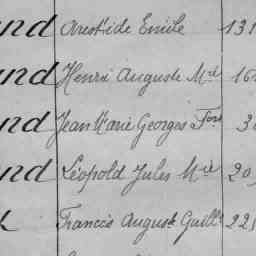 and Aristide Emile 131
and Henri Auguste Mel 16
and Jean Marie Georges Fois 3
and Léopold Jules Mie 20
Francis August Guill 225